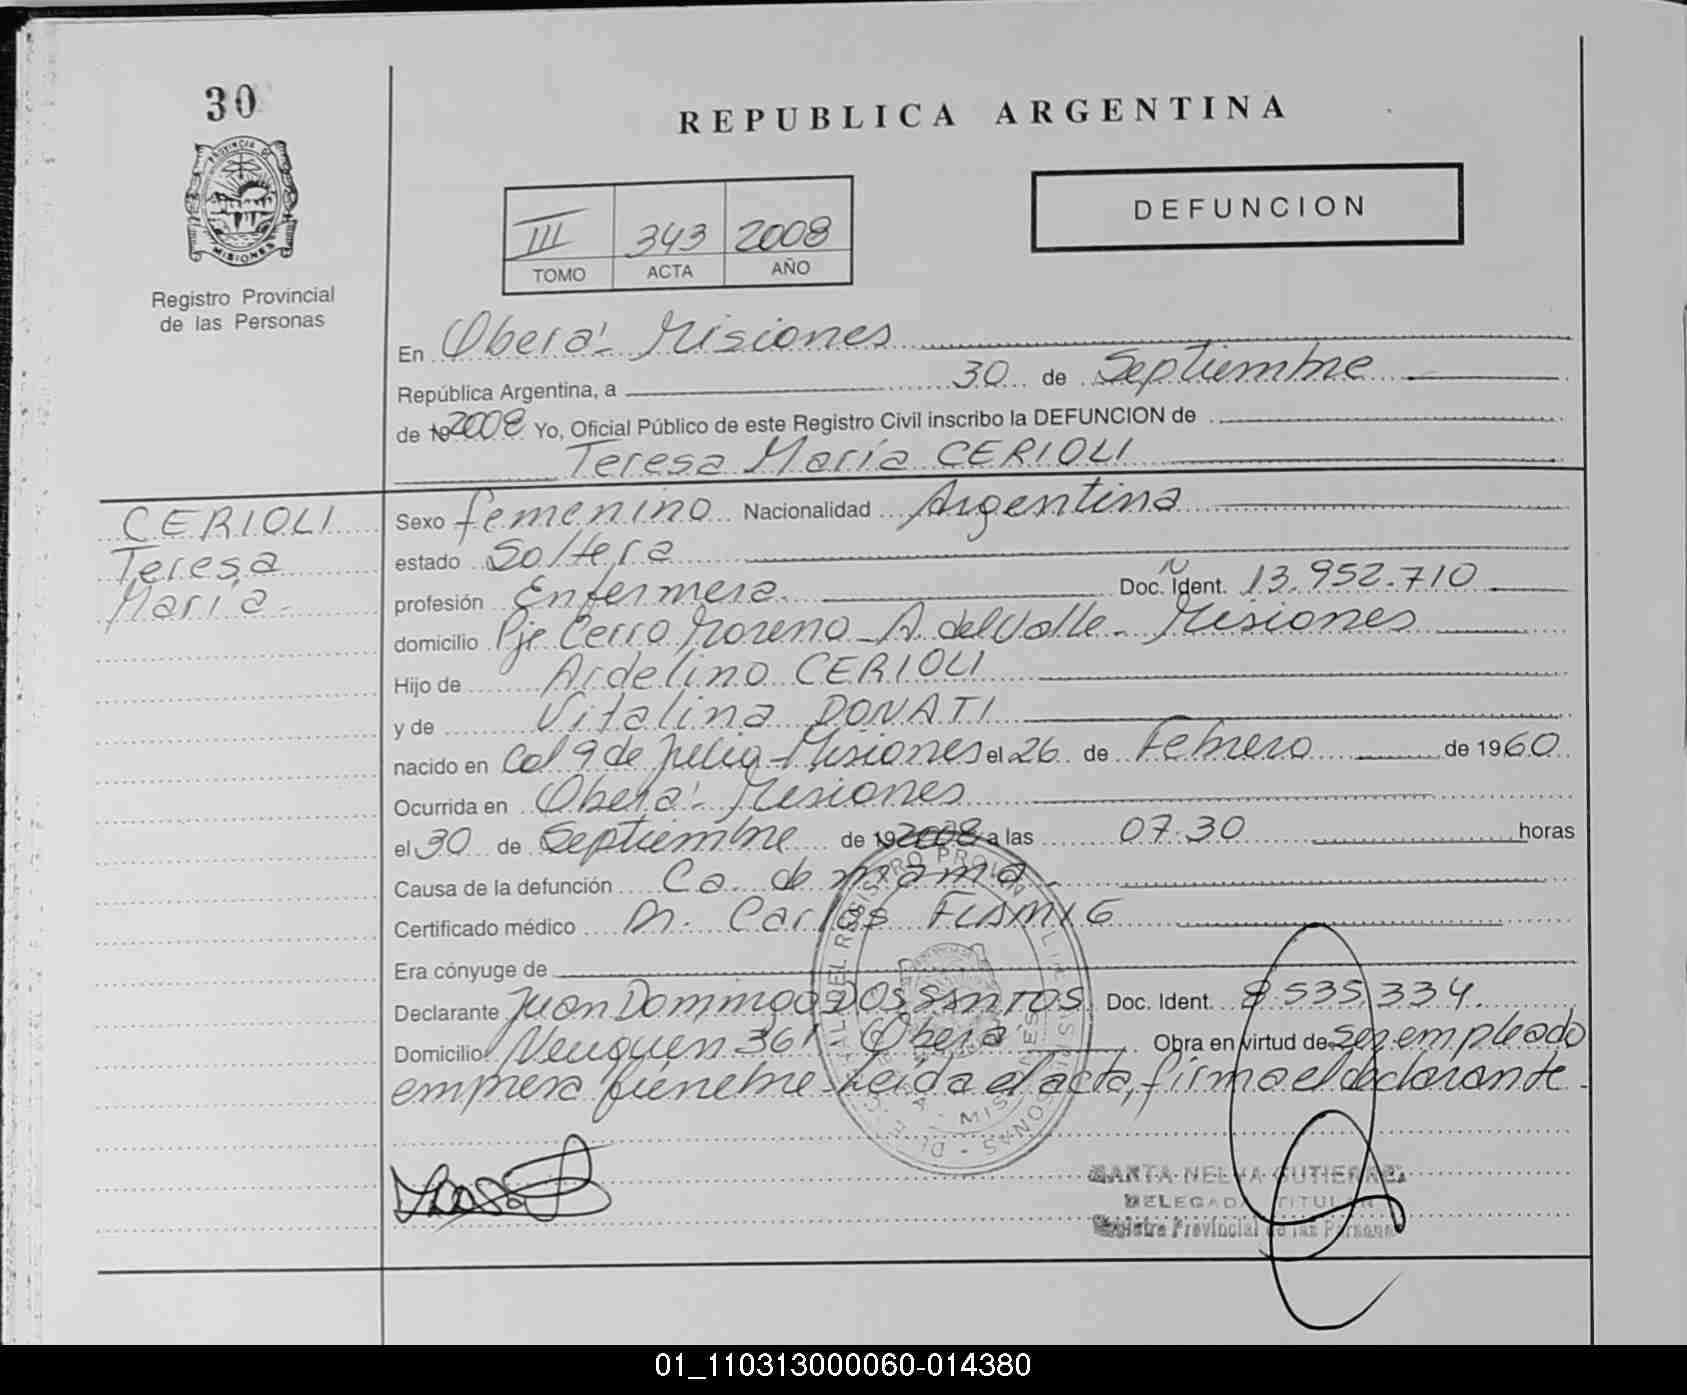 30
PROVINCIA DE
MISIONES
Registro Provincial
de las Personas
REPUBLICA ARGENTINA
DEFUNCION
III 343 2008
TOMO ACTA AÑO
En Oberá - Misiones
República Argentina, a 30 de Septiembre
de 192008 Yo, Oficial Público de este Registro Civil inscribo la DEFUNCION de
Teresa María CERIOLI
CERIOLI
Teresa
María.
Sexo femenino Nacionalidad Argentina
estado Soltera
profesión Enfermera. Doc. Ident. 13.952.710
domicilio Pje Cerro Moreno - A. del Valle - Misiones
Hijo de Ardelino CERIOLI
y de Vitalina DONATI
nacido en Col 9 de Julio - Misiones el 26 de Febrero de 1960
Ocurrida en Oberá - Misiones
el 30 de Septiembre de 192008 a las 07.30 horas
Causa de la defunción Ca. de mama
Certificado médico Dr. Carlos FLAMIG
Era cónyuge de
Declarante Juan Domingo DOS SANTOS Doc. Ident. 8.535.334
Domicilio Neuquen 361 Oberá Obra en virtud de ser empleado
empresa fúnebre - Leída el acta, firma el declarante -
MISIONES
NELVA GUTIERREZ
DELEGADA TITULAR
Registro Provincial de las Personas
01_110313000060-014380